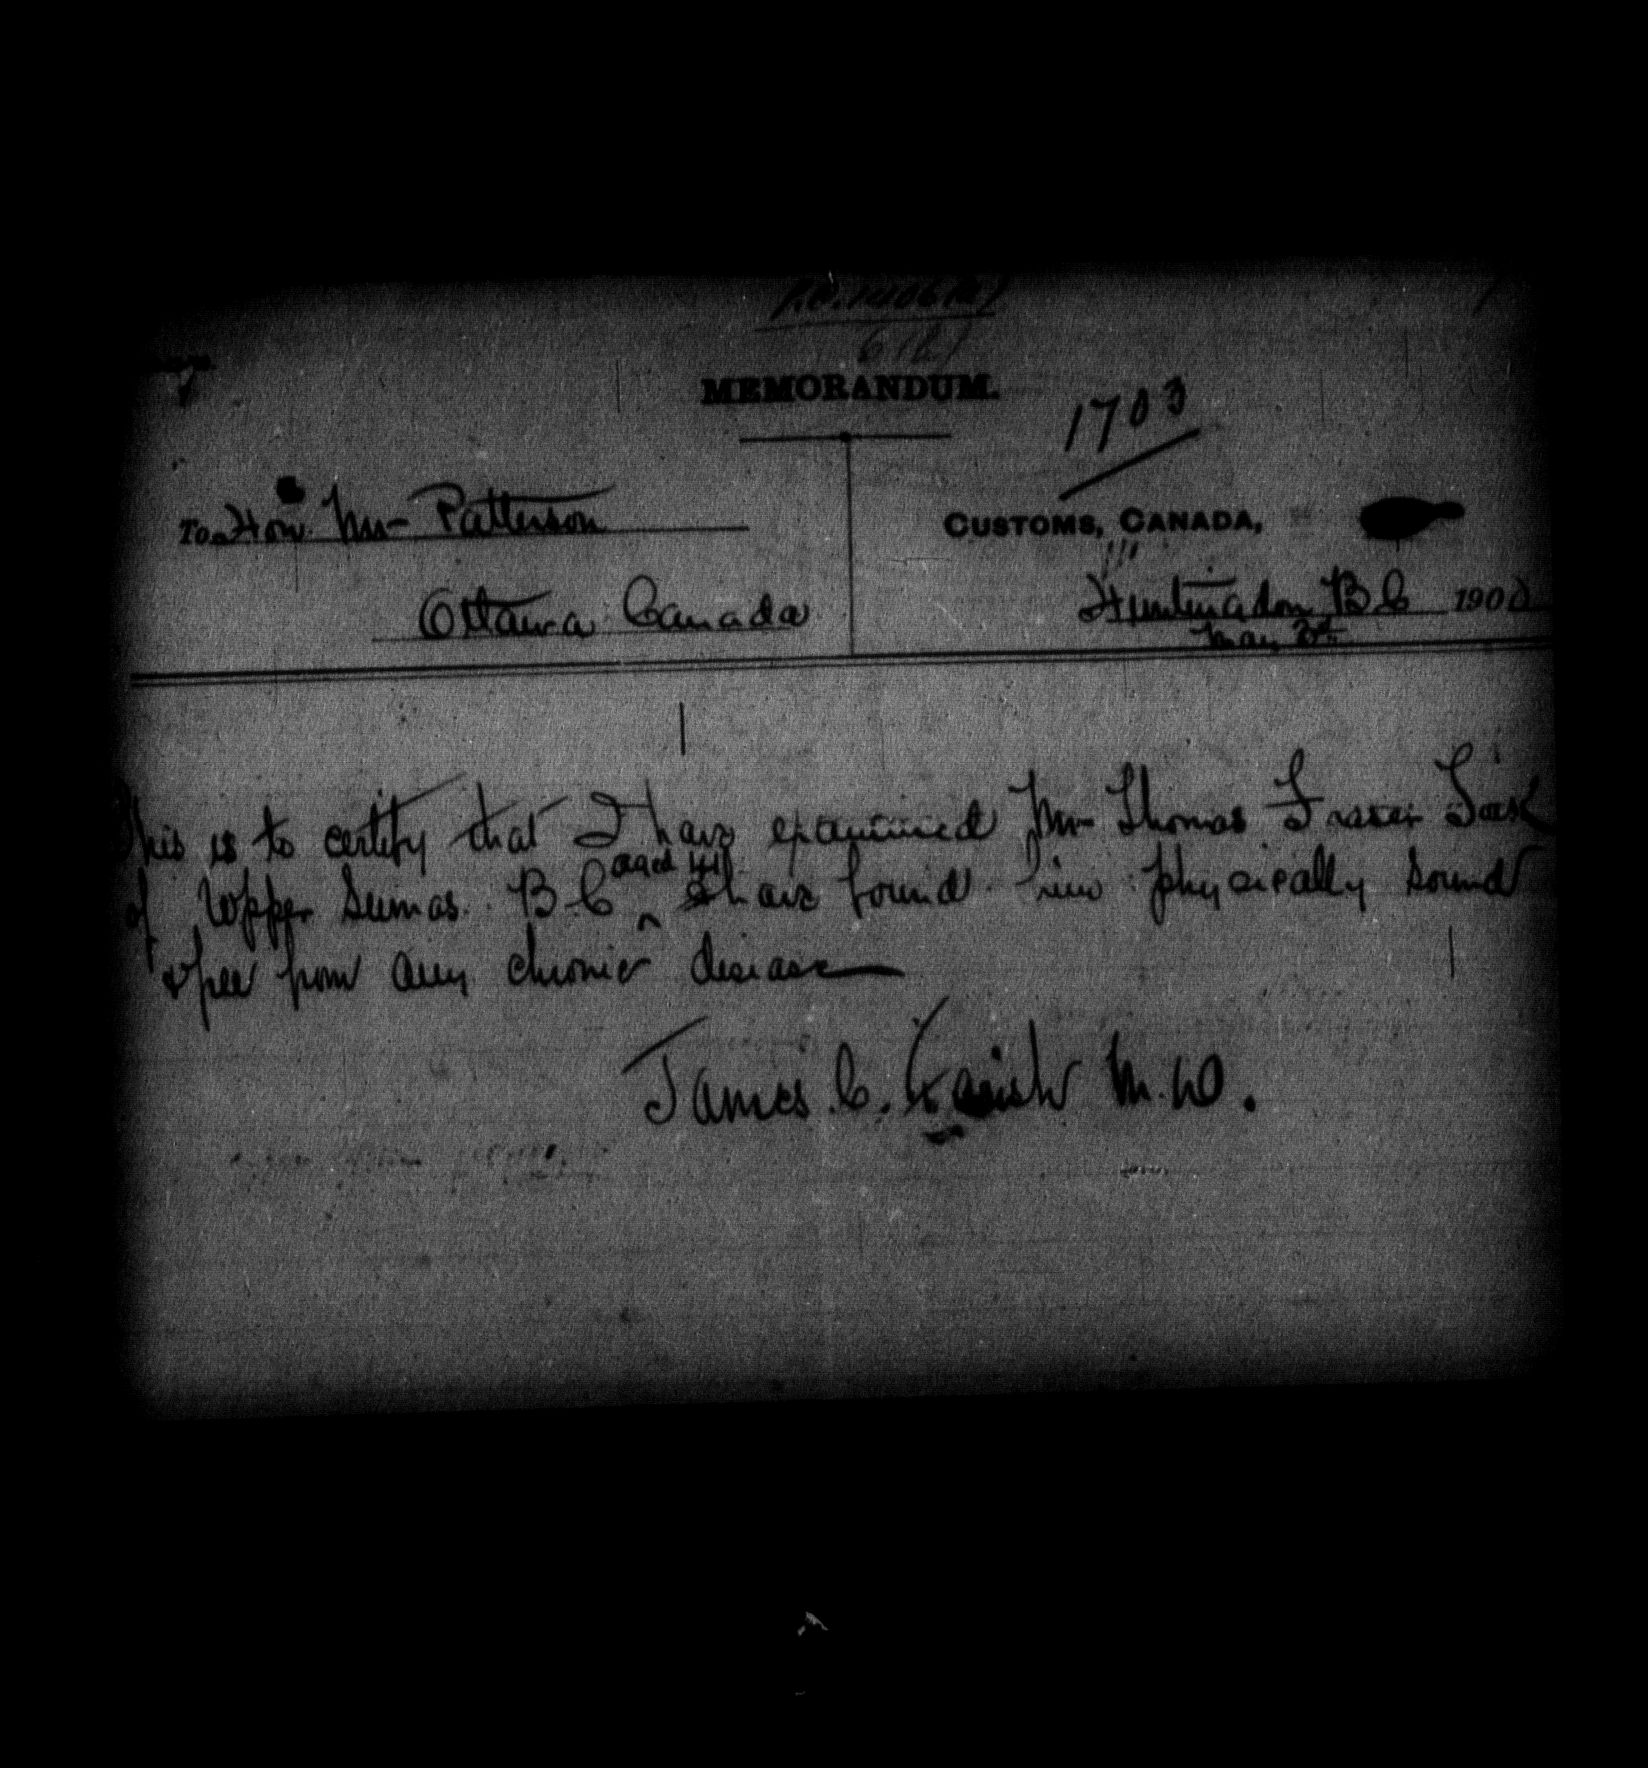 MEMORANDUM.
1703
To Hon. Mr Patterson
CUSTOMS, CANADA,
Ottawa Canada
Huntingdon B C 1900
May
This is to certify that I have examined Mr Thomas Fraser
aged
of Upper Sumas. B C ^ & have found him physically sound
& free from any chronic disease
James C. M.D.